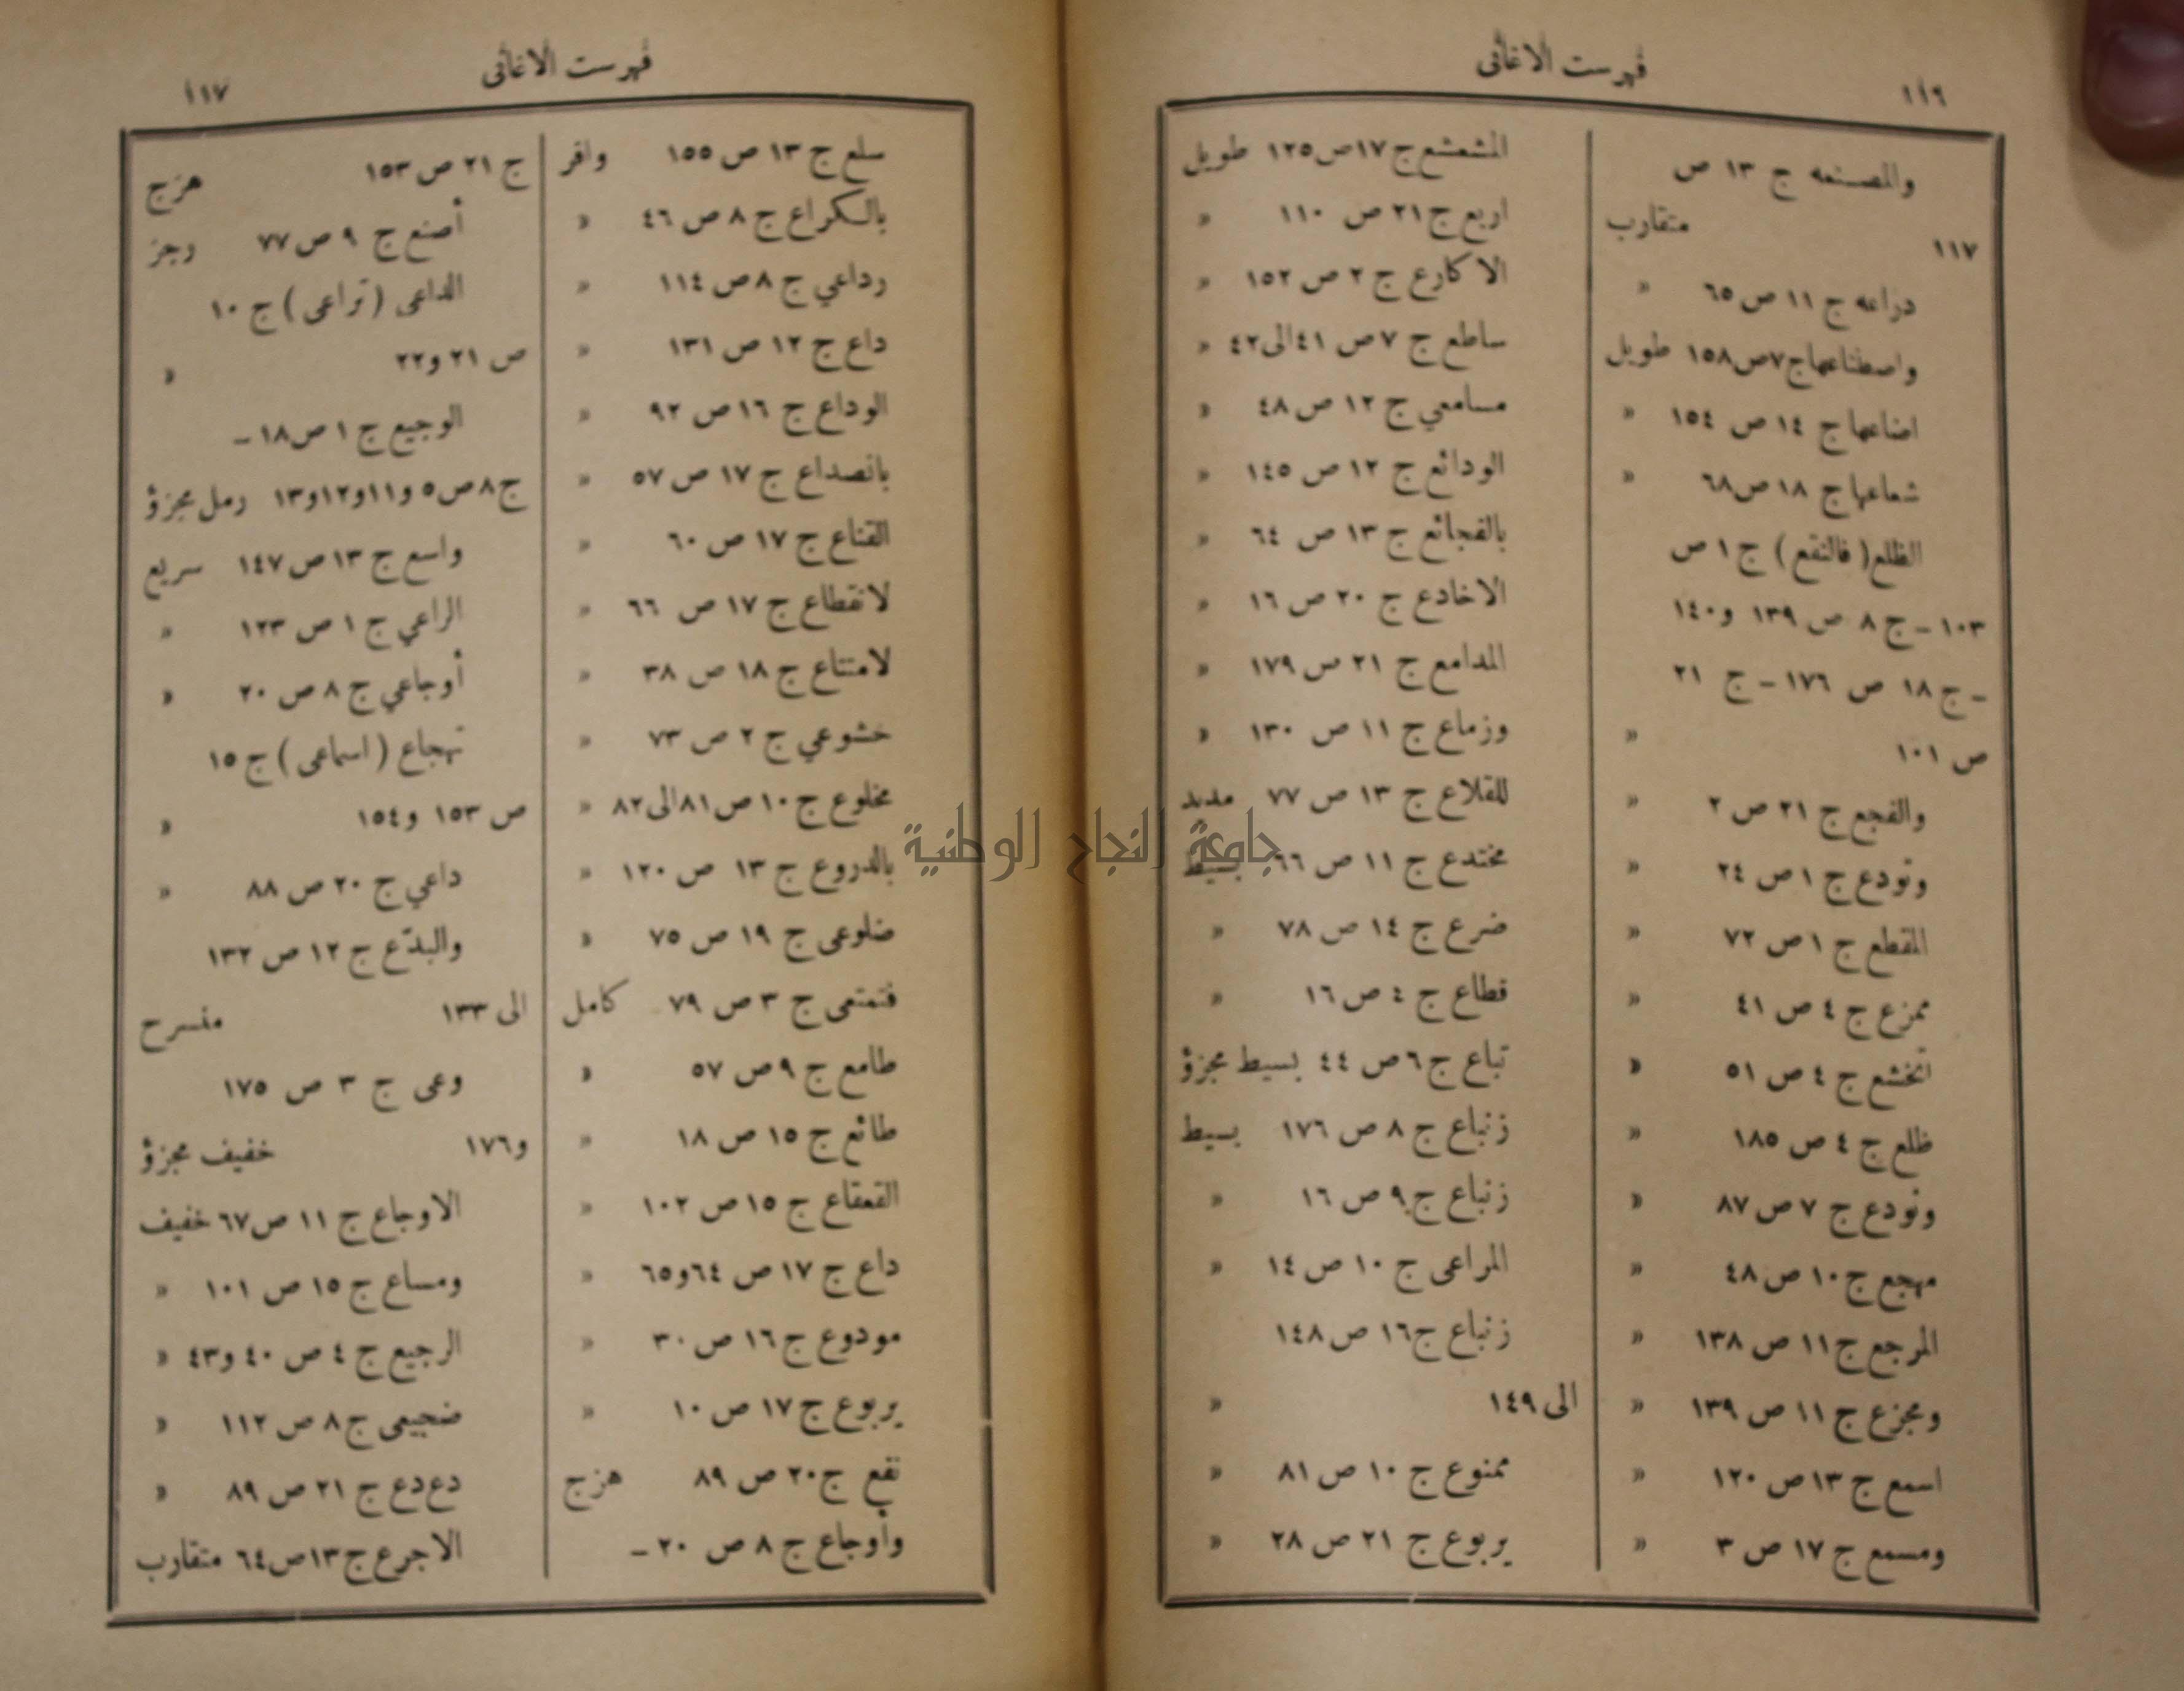 ١١٦
فهرست الاغانى
والمصنعه ج ١٣ ص
١١٧ متقارب
دراعه ج ١١ ص ٦٥ «
واصطناعها ج ٧ ص ١٥٨ طويل
اضاعها ج ١٤ ص ١٥٤ «
شعاعها ج ١٨ ص ٦٨ «
الظلع (فالنقع) ج ١ ص
١٠٣ - ج ٨ ص ١٣٩ و١٤٠
- ج ١٨ ص ١٧٦ - ج ٢١
ص ١٠١ «
والفجع ج ٢١ ص ٢ «
وتودع ج ١ ص ٢٤ «
المقطع ج ١ ص ٧٢ «
ممزع ج ٤ ص ٤١ «
اتخشع ج ٤ ص ٥١ «
ظلع ج ٤ ص ١٨٥ «
وتودع ج ٧ ص ٨٧ «
مهجع ج ١٠ ص ٤٨ «
المرجع ج ١١ ص ١٣٨ «
ومجزع ج ١١ ص ١٣٩ «
اسمع ج ١٣ ص ١٢٠ «
ومسمع ج ١٧ ص ٣ «
المشعشع ج ١٧ ص ١٢٥ طويل
اربع ج ٢١ ص ١١٠ «
الاكارع ج ٢ ص ١٥٢ «
ساطع ج ٧ ص ٤١ الى ٤٢ «
مسامعي ج ١٢ ص ٤٨ «
الودائع ج ١٢ ص ١٤٥ «
بالفجائع ج ١٣ ص ٦٤ «
الاخادع ج ٢٠ ص ١٦ «
المدامع ج ٢١ ص ١٧٩ «
وزماع ج ١١ ص ١٣٠ «
للقلاع ج ١٣ ص ٧٧ مديد
مختدع ج ١١ ص ٦٦ بسيط
ضرع ج ١٤ ص ٧٨ «
قطاع ج ٤ ص ١٦ «
تباع ج ٦ ص ٤٤ بسيط مجزؤ
زنباع ج ٨ ص ١٧٦ بسيط
زنباع ج ٩ ص ١٦ «
المراعى ج ١٠ ص ١٤ «
زنباع ج ١٦ ص ١٤٨
الى ١٤٩ «
ممنوع ج ١٠ ص ٨١ «
يربوع ج ٢١ ص ٢٨ «
فهرست الاغانى
١١٧
سلع ج ١٣ ص ١٥٥ وافر
بالكراع ج ٨ ص ٤٦ «
رداعي ج ٨ ص ١١٤ «
داع ج ١٢ ص ١٣١ «
الوداع ج ١٦ ص ٩٢ «
بانصداع ج ١٧ ص ٥٧ «
القناع ج ١٧ ص ٦٠ «
لانقطاع ج ١٧ ص ٦٦ «
لامتناع ج ١٨ ص ٣٨ «
خشوعي ج ٢ ص ٧٣ «
مخلوع ج ١٠ ص ٨١ الى ٨٢ «
بالدروع ج ١٣ ص ١٢٠ «
ضلوعى ج ١٩ ص ٧٥ «
فتمتعى ج ٣ ص ٧٩ كامل
طامع ج ٩ ص ٥٧ «
طائع ج ١٥ ص ١٨ «
القعقاع ج ١٥ ص ١٠٢ «
داع ج ١٧ ص ٦٤ و٦٥ «
مودوع ج ١٦ ص ٣٠ «
يربوع ج ١٧ ص ١٠ «
تقع ج ٢٠ ص ٨٩ هزج
وأوجاع ج ٨ ص ٢٠ -
ج ٢١ ص ١٥٣ هزج
أصنع ج ٩ ص ٧٧ رجز
الداعى (تراعى) ج ١٠
ص ٢١ و٢٢ «
الوجيع ج ١ ص ١٨ -
ج ٨ ص ٥ و١١ و١٢ و١٣ رمل مجزؤ
واسع ج ١٣ ص ١٤٧ سريع
الراعي ج ١ ص ١٢٣ «
أوجاعي ج ٨ ص ٢٠ «
تهجاع (اسماعى) ج ١٥
ص ١٥٣ و١٥٤ «
داعي ج ٢٠ ص ٨٨ «
والبدّع ج ١٢ ص ١٣٢
الى ١٣٣ منسرح
وعى ج ٣ ص ١٧٥
و١٧٦ خفيف مجزؤ
الاوجاع ج ١١ ص ٦٧ خفيف
ومساع ج ١٥ ص ١٠١ «
الرجيع ج ٤ ص ٤٠ و٤٣ «
ضجيعى ج ٨ ص ١١٢ «
دع دع ج ٢١ ص ٨٩ «
الاجرع ج ١٣ ص ٦٤ متقارب
جامعة النجاح الوطنية